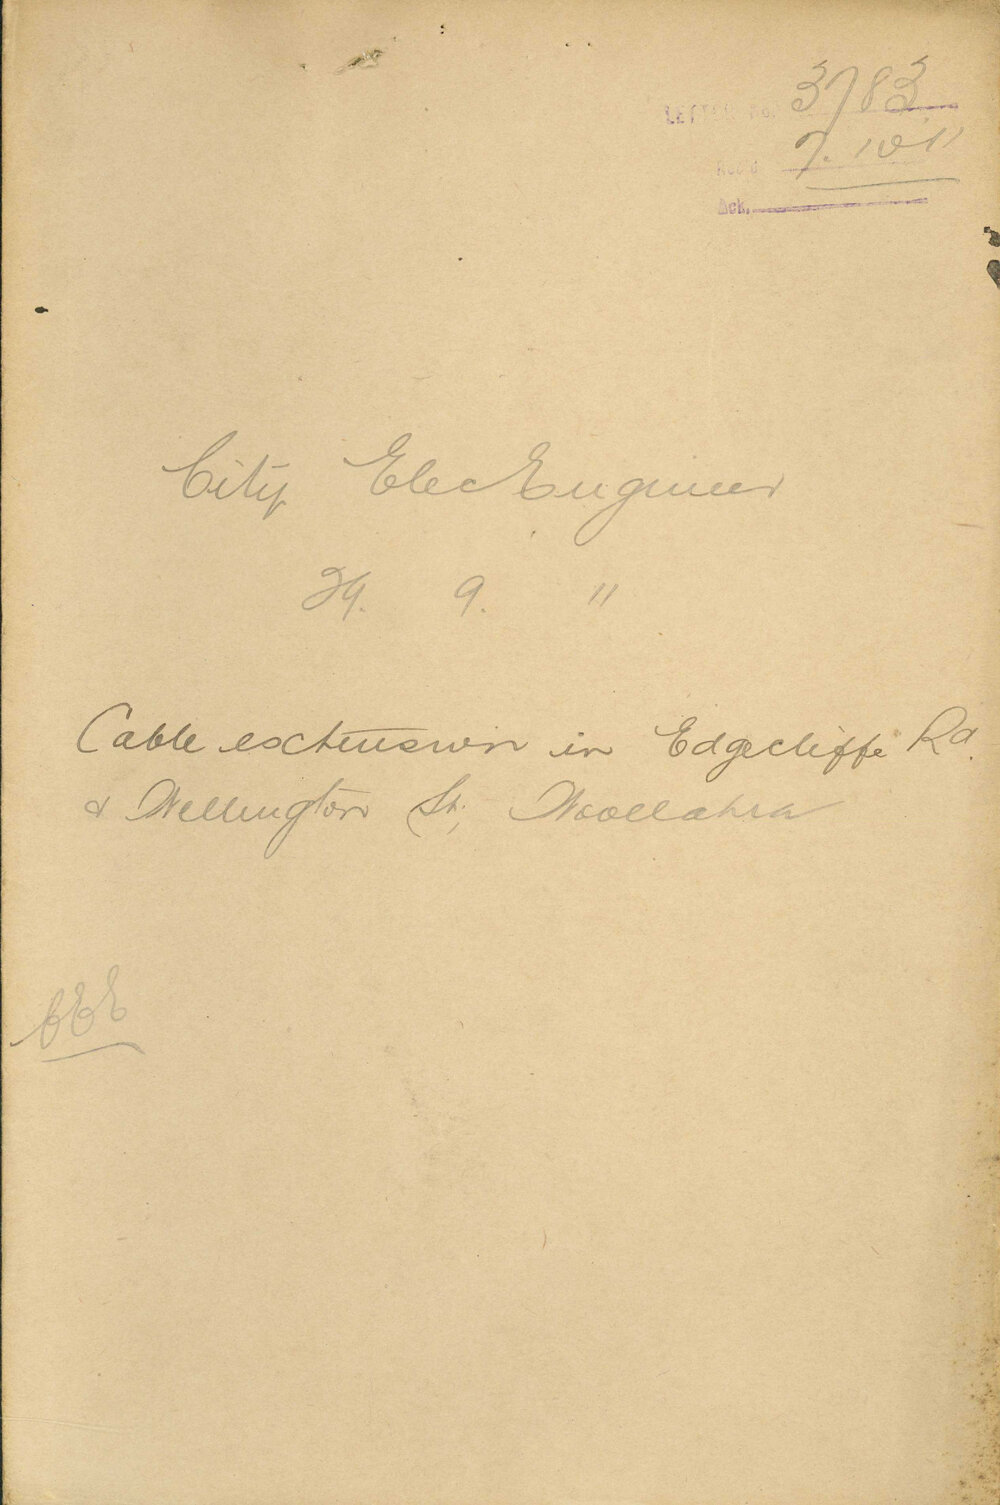 LETTER No. 3783
Rec'd 7. 10 11
Ack.
City Elec Engineer
29. 9. 11
Cable extension in Edgecliffe Rd.
& Wellington St, Woollahra
CEE